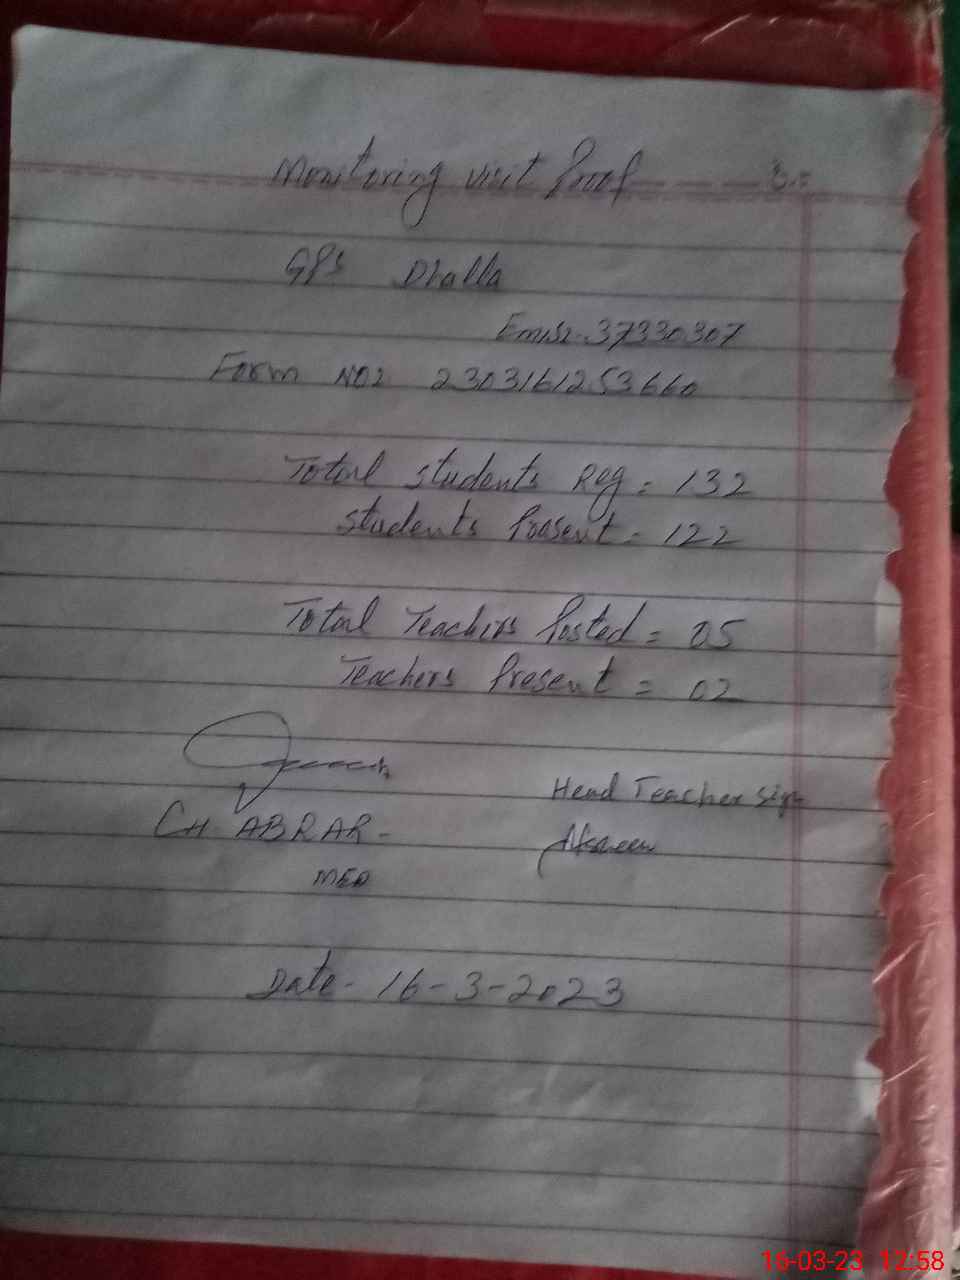 Monitoring visit Proof
GPS Dhalla
Emis:-37330307
Form NO: 2303161253660
Total students Reg = 132
students Present = 122
Total Teachers Posted = 05
Teachers Present = 02
Head Teacher sign
CH ABRAR-
MEA
Date- 16-3-2023
16-03-23 12:58